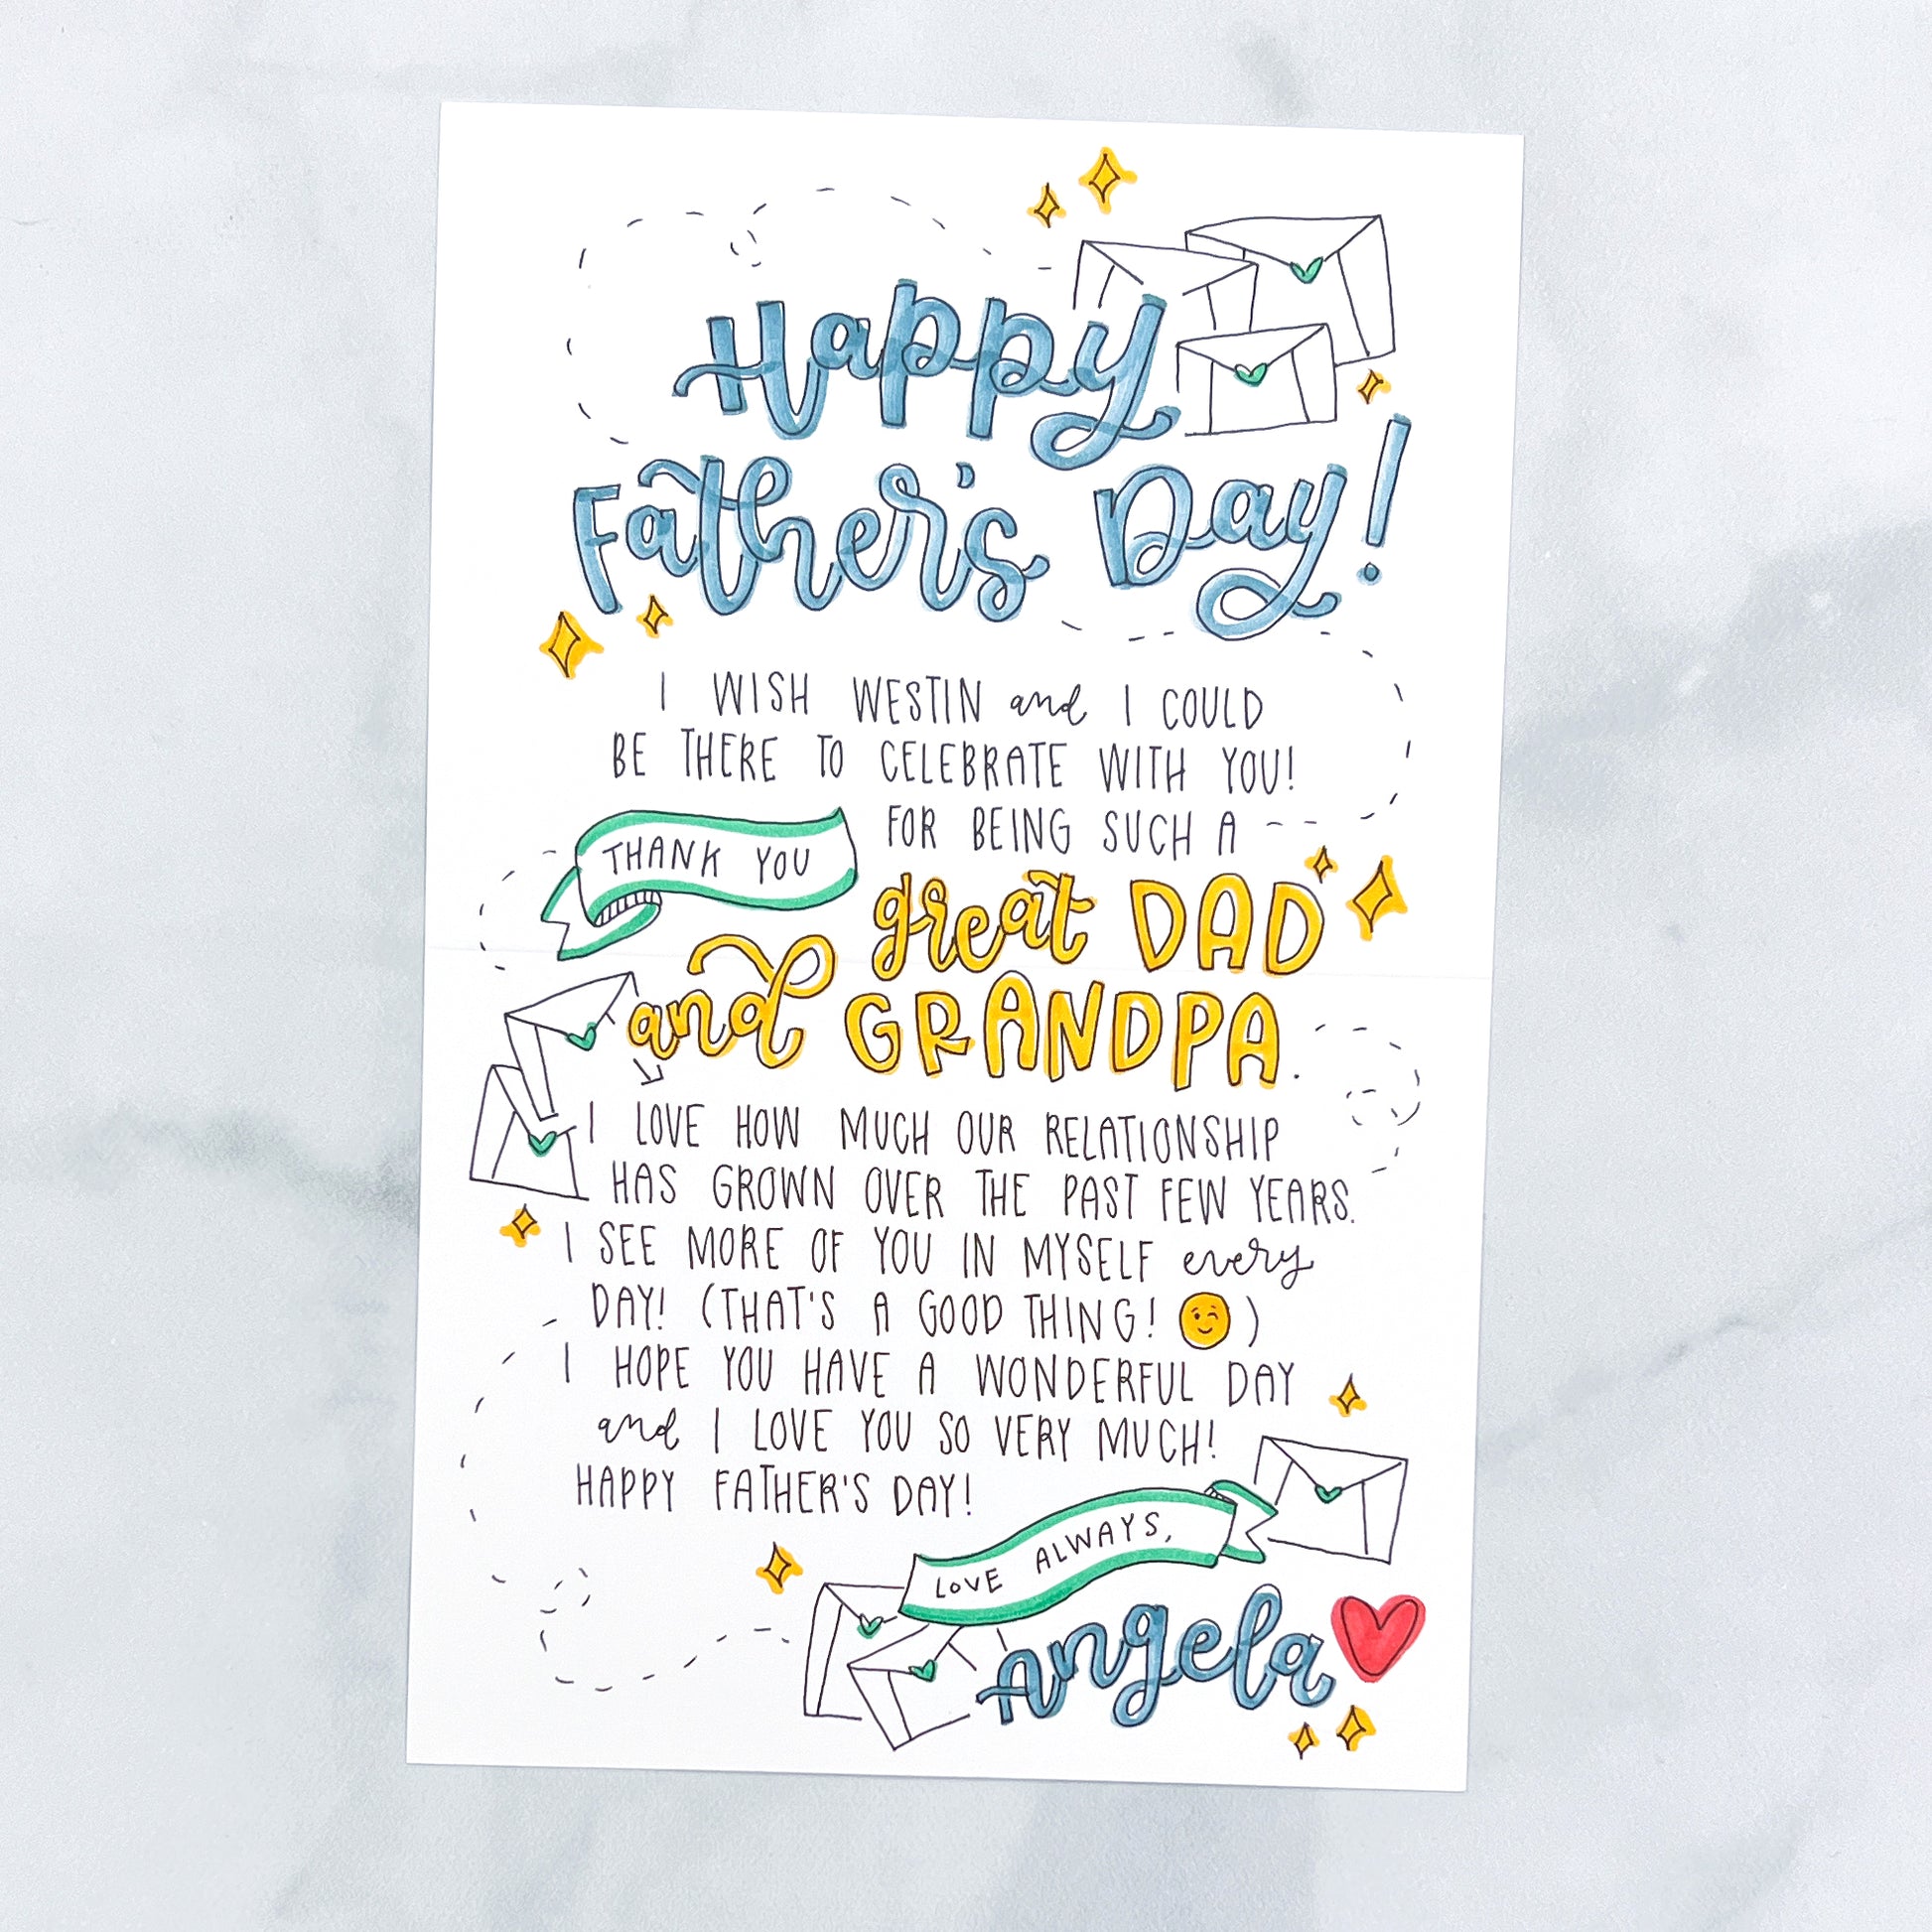 Happy
Father's Day!
I WISH WESTIN and I COULD
BE THERE TO CELEBRATE WITH YOU!
THANK YOU FOR BEING SUCH A
great DAD
and GRANDPA.
I LOVE HOW MUCH OUR RELATIONSHIP
HAS GROWN OVER THE PAST FEW YEARS.
I SEE MORE OF YOU IN MYSELF every
DAY! (THAT'S A GOOD THING! 😉)
I HOPE YOU HAVE A WONDERFUL DAY
and I LOVE YOU SO VERY MUCH!
HAPPY FATHER'S DAY!
LOVE ALWAYS,
Angela